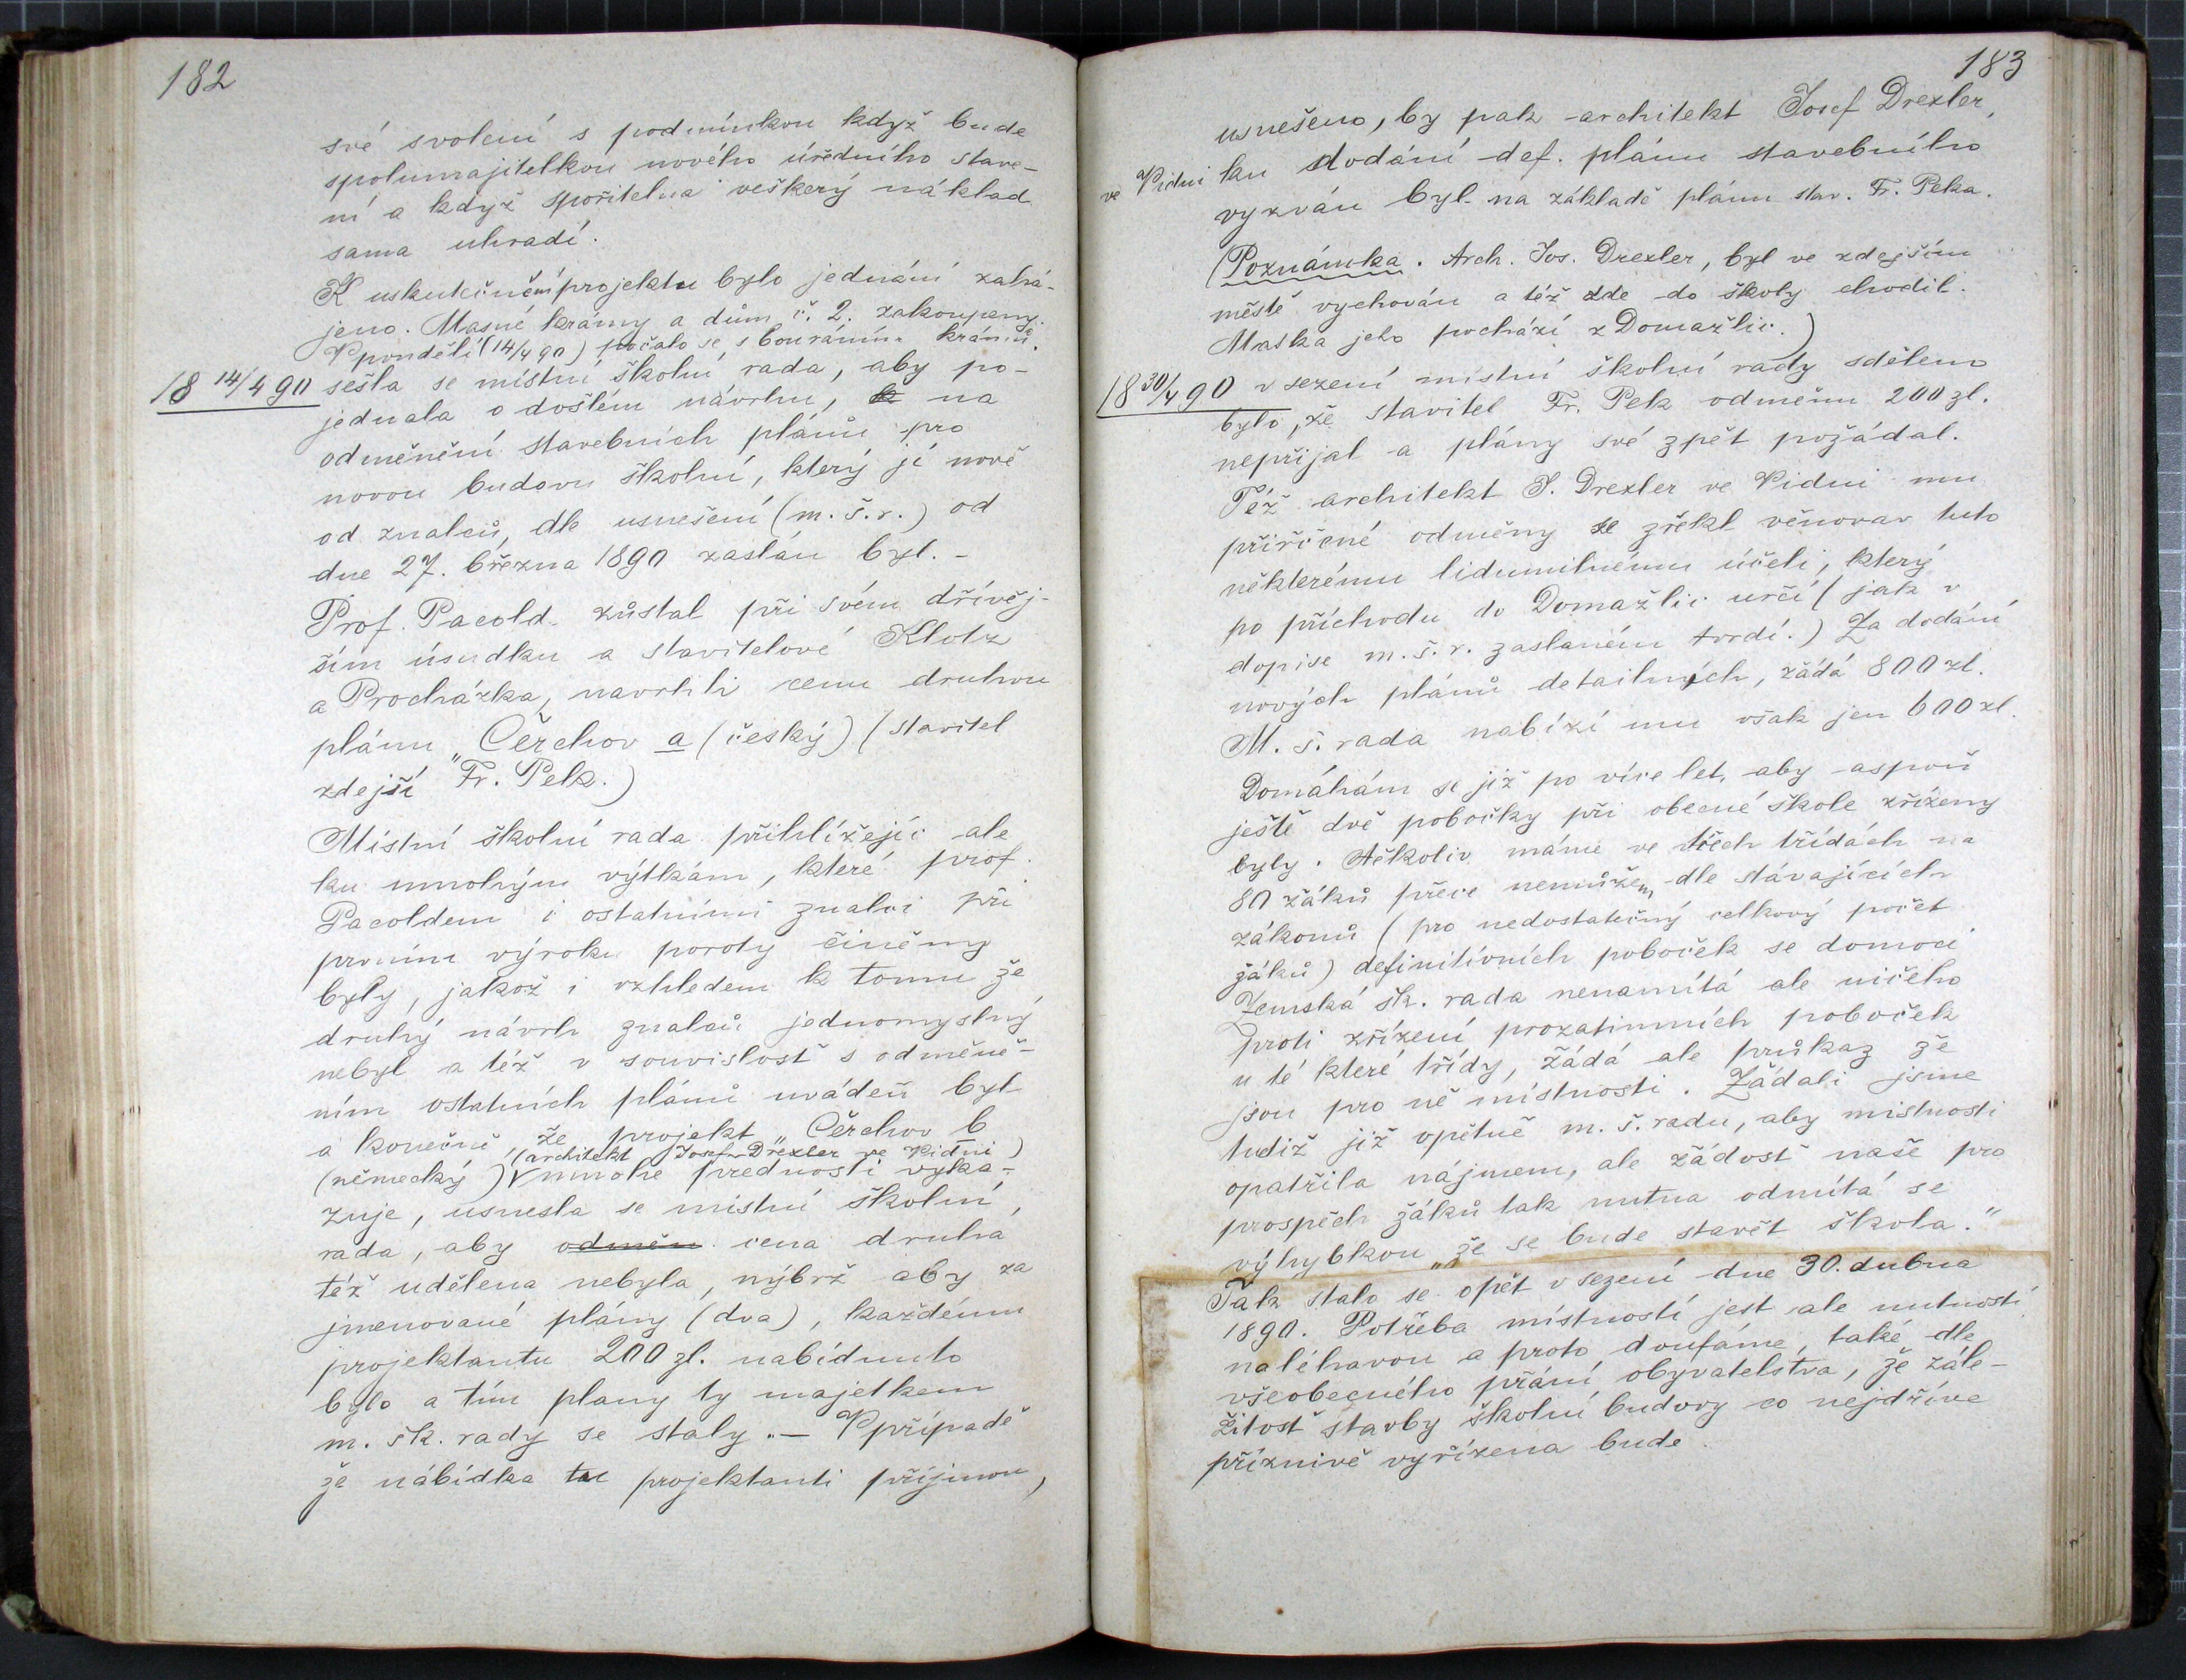 182
své svolení s podmínkou když bude
spolumajitelkou nového úředního stave-
ní a když spořitelna veškerý náklad
sama uhradí.
K uskutečnění projektu bylo jednání zahá-
jeno. Masné krámy a dům č. 2. zakoupeny.
V pondělí (14/4 90) počalo se s bouráním krámů.
18 14/4 90 sešla se místní školní rada, aby po-
jednala o došlém návrhu, na
odměnění stavebních plánů pro
novou budovu školní, který jí nově
od znalců, dle usnešení (m. š. r.) od
dne 27. března 1890 zaslán byl. -
Prof. Pacold zůstal při svém dřívěj-
ším úsudku a stavitelové Klotz
a Procházka, navrhli cenu druhou
plánu „Čerchov a (český) (stavitel
zdejší Fr. Pek.)
Místní školní rada přihlížejíc ale
ku mnohým výtkám, které prof.
Pacoldem i ostatními znalci při
prvním výroku poroty činěny
byly, jakož i vzhledem k tomu že
druhý návrh znalců jednomyslný
nebyl a též v souvislosť s odměně-
ním ostatních plánů uváděn byl
a konečně, že projekt „Čerchov b
(architekt Josef Drexler ve Vídni)
(německý) mnohé přednosti vyka-
zuje, usnesla se místní školní
rada, aby odměn cena druhá
též udělena nebyla, nýbrž aby za
jmenované plány (dva), každému
projektantu 200 zl. nabídnuto
bylo a tím plany ty majetkem
m. šk. rady se staly. - V případě
že nábídka tu projektanti přijmou,
183
usnešeno, by pak architekt Josef Drexler,
ve Vídni ku dodání def. plánu stavebního
vyzván byl na základě plánu stav. Fr. Peka.
(Poznámka. Arch. Jos. Drexler, byl ve zdejším
městě vychován a též zde do školy chodil.
Matka jeho pochází z Domažlic.)
18 30/4 90 v sezení místní školní rady sděleno
bylo, že stavitel Fr. Pek odměnu 200 zl.
nepřijal a plány své zpět požádal.
Též architekt J. Drexler ve Vídni mu
přiřčené odměny se zřekl věnovav tuto
některému lidumilnému účeli, který
po příchodu do Domažlic určí (jak v
dopise m. š. r. zaslaném tvrdí.) Za dodání
nových plánů detailných, žádá 800 zl.
M. š. rada nabízí mu však jen 600 zl.
Domáhám se již po více let, aby aspoň
ještě dvě pobočky při obecné škole zřízeny
byly. Ačkoliv máme ve třech třídách na
80 žáků přece nemůžem dle stávajících
zákonů (pro nedostatečný celkový počet
žáků) definitivních poboček se domoci
Zemská šk. rada nenamítá ale ničeho
proti zřízení prozatimních poboček
u té které třídy, žádá ale průkaz že
jsou pro ně místnosti. Žádali jsme
tudiž již opětně m. š. radu, aby místnosti
opatřila nájmem, ale žádosť naše pro
prospěch žáků tak nutna odmítá se
výhybkou „že se bude stavět škola."
Tak stalo se opět v sezení dne 30. dubna
1890. Potřeba místností jest ale nutností
naléhavou a proto doufáme, také dle
všeobecného přání obyvatelstva, že zále-
žitosť stavby školní budovy co nejdříve
příznivě vyřízena bude.